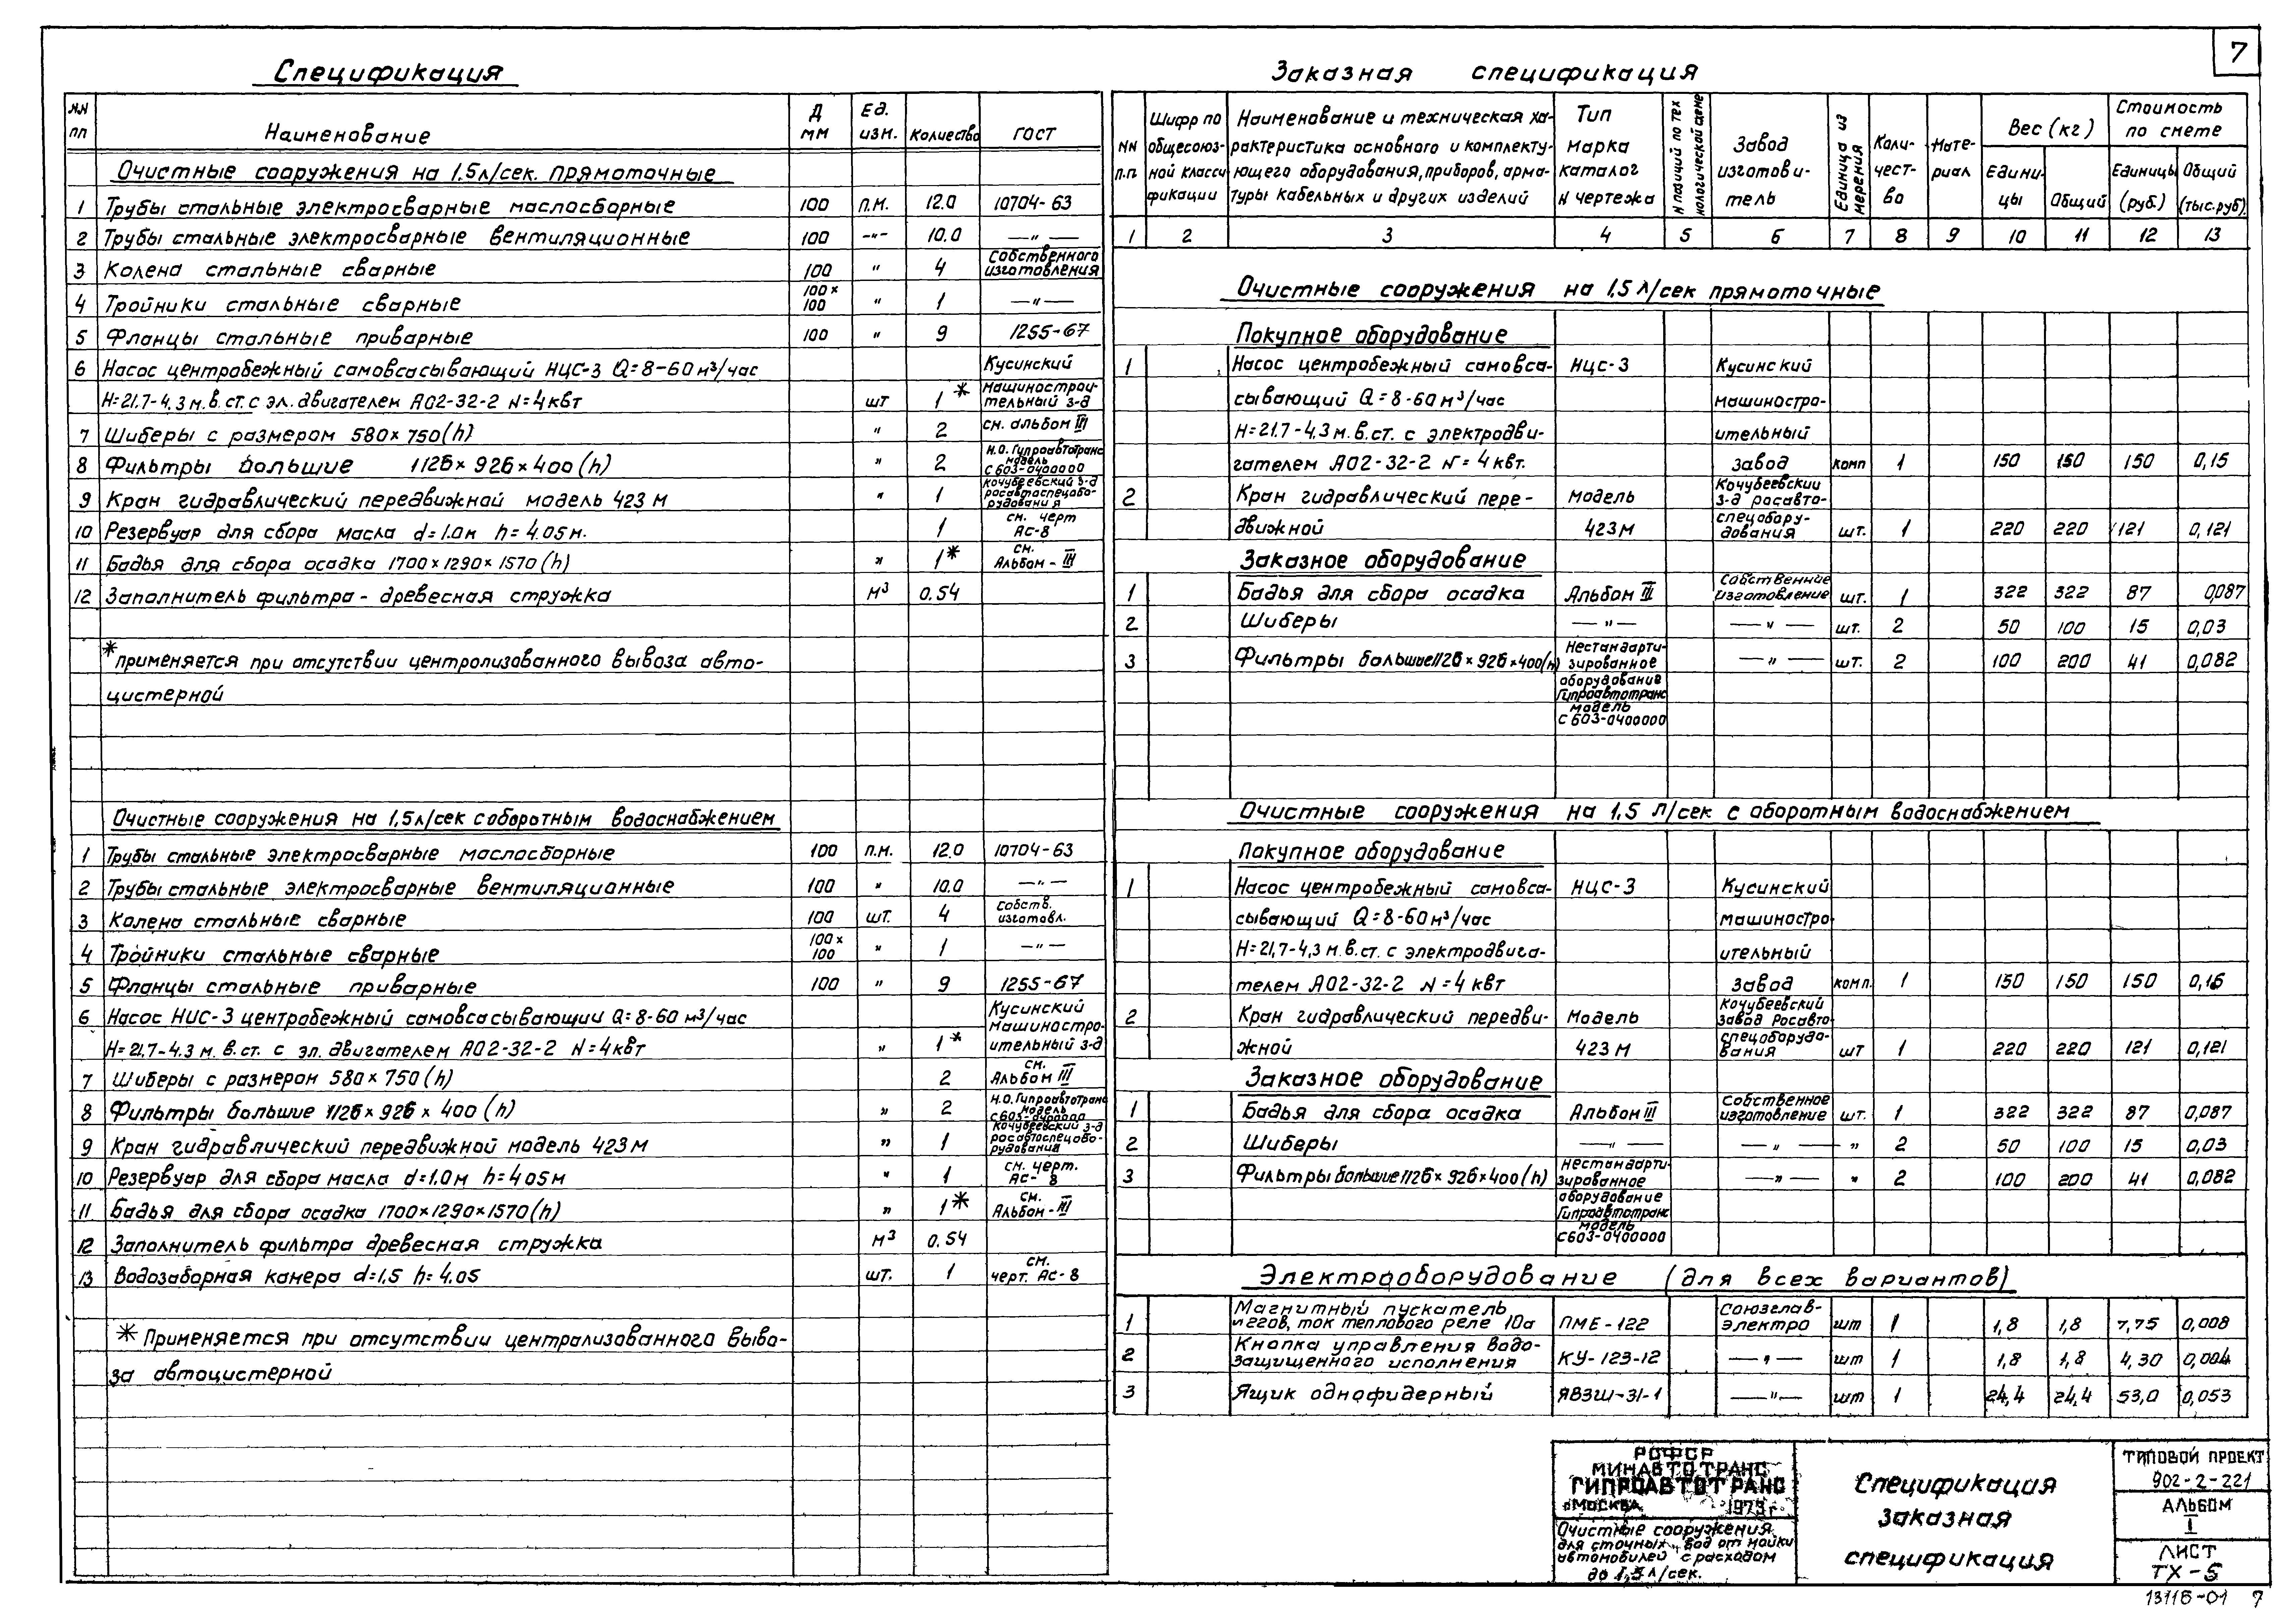 7
Спецификация
NN пп Наименование Д мм Ед. изм. Количество ГОСТ
Очистные сооружения на 1.5л/сек. прямоточные
1 Трубы стальные электросварные маслосборные 100 п.м. 12.0 10704-63
2 Трубы стальные электросварные вентиляционные 100 -"- 10.0 —"—
3 Колена стальные сварные 100 " 4 Собственного изготовления
4 Тройники стальные сварные 100× 100 " 1 —"—
5 Фланцы стальные приварные 100 " 9 1255-67
6 Насос центробежный самовсасывающий НЦС-3 Q=8-60 м³/час Кусинский
H=21.7-4.3 м.в.ст. с эл.двигателем АО2-32-2 N=4квт шт 1* машиностроительный з-д
7 Шиберы с размером 580×750(h) " 2 см. альбом III
8 Фильтры большие 1126×926×400(h) " 2 Н.О. Гипроавтотранс модель С603-0400000
9 Кран гидравлический передвижной модель 423 м " 1 Кочубеевский з-д росавтоспецоборудования
10 Резервуар для сбора масла d=1.0м h=4.05м. 1 см. черт АС-8
11 Бадья для сбора осадка 1700×1290×1570(h) " 1* см. Альбом-III
12 Заполнитель фильтра - древесная стружка м³ 0.54
*применяется при отсутствии централизованного вывоза авто-
цистерной
Очистные сооружения на 1,5л/сек с оборотным водоснабжением
1 Трубы стальные электросварные маслосборные 100 п.м. 12.0 10704-63
2 Трубы стальные электросварные вентиляционные 100 " 10.0 —"—
3 Колена стальные сварные 100 шт. 4 собств. изготовл.
4 Тройники стальные сварные 100× 100 " 1 —"—
5 Фланцы стальные приварные 100 " 9 1255-67
6 Насос НЦС-3 центробежный самовсасывающий Q=8-60 м³/час Кусинский
H=21.7-4.3 м. в.ст. с эл. двигателем АО2-32-2 N=4квт " 1* машиностроительный з-д
7 Шиберы с размером 580×750(h) 2 см. Альбом III
8 Фильтры большие 1126×926×400(h) " 2 Н.О. Гипроавтотранс модель С603-0400000
9 Кран гидравлический передвижной модель 423 м " 1 Кочубеевский з-д росавтоспецоборудования
10 Резервуар для сбора масла d=1.0м h=4.05м " 1 см. черт. АС-8
11 Бадья для сбора осадка 1700×1290×1570(h) " 1* см. Альбом-III
12 Заполнитель фильтра древесная стружка м³ 0.54
13 Водозаборная камера d=1,5 h=4.05 шт. 1 см. черт. АС-8
* Применяется при отсутствии централизованного выво-
за автоцистерной
Заказная спецификация
NN п.п Шифр по общесоюзной классификации Наименование и техническая характеристика основного и комплектующего оборудования, приборов, арматуры кабельных и других изделий Тип марка каталог N чертежа N позиций по технологической схеме Завод изготовитель Единица измерения Количество Материал Вес (кг) Единицы Общий Стоимость по смете Единицы (руб.) Общий (тыс.руб).
1 2 3 4 5 6 7 8 9 10 11 12 13
Очистные сооружения на 1,5 л/сек прямоточные
Покупное оборудование
1 Насос центробежный самовса- НЦС-3 Кусинский
сывающий Q=8-60 м³/час машиностро-
H=21.7-4.3 м.в.ст. с электродви- ительный
гателем АО2-32-2 N=4 квт. завод комп 1 150 150 150 0,15
2 Кран гидравлический пере- модель Кочубеевский з-д росавто-
движной 423 м спецоборудования шт. 1 220 220 121 0,121
Заказное оборудование
1 Бадья для сбора осадка Альбом III Собственное изготовление шт. 1 322 322 87 0,087
2 Шиберы —"— —"— шт. 2 50 100 15 0,03
3 Фильтры большие 1126×926×400(h) Нестандартизированное —"— шт. 2 100 200 41 0,082
оборудование Гипроавтотранс
модель С603-0400000
Очистные сооружения на 1,5 л/сек с оборотным водоснабжением
Покупное оборудование
1 Насос центробежный самовса- НЦС-3 Кусинский
сывающий Q=8-60 м³/час машиностро
H=21,7-4,3 м.в.ст. с электродвига- ительный
телем АО2-32-2 N=4 квт завод комп. 1 150 150 150 0,15
2 Кран гидравлический передви- Модель Кочубеевский завод Росавто-
жной 423 м спецоборудования шт 1 220 220 121 0,121
Заказное оборудование
1 Бадья для сбора осадка Альбом III Собственное изготовление шт. 1 322 322 87 0,087
2 Шиберы —"— —"— " 2 50 100 15 0,03
3 Фильтры большие 1126×926×400(h) Нестандартизированное —"— " 2 100 200 41 0,082
оборудование Гипроавтотранс
модель С603-0400000
Электрооборудование (для всех вариантов)
1 Магнитный пускатель ток теплового реле 10а ПМЕ-122 Союзглавэлектро шт 1 1,8 1,8 7,75 0,008
2 Кнопка управления водозащищенного исполнения КУ-123-12 —"— шт 1 1,8 1,8 4,30 0,004
3 Ящик однофидерный ЯВЗШ-31-1 —"— шт 1 24,4 24,4 53,0 0,053
РСФСР
МИНАВТОТРАНС
ГИПРОАВТОТРАНС
г.Москва 1973г
Очистные сооружения
для сточных вод от мойки
автомобилей с расходом
до 1,5 л/сек.
Спецификация
Заказная
спецификация
ТИПОВОЙ ПРОЕКТ
902-2-221
АЛЬБОМ
I
ЛИСТ
ТХ-5
13115-01 7